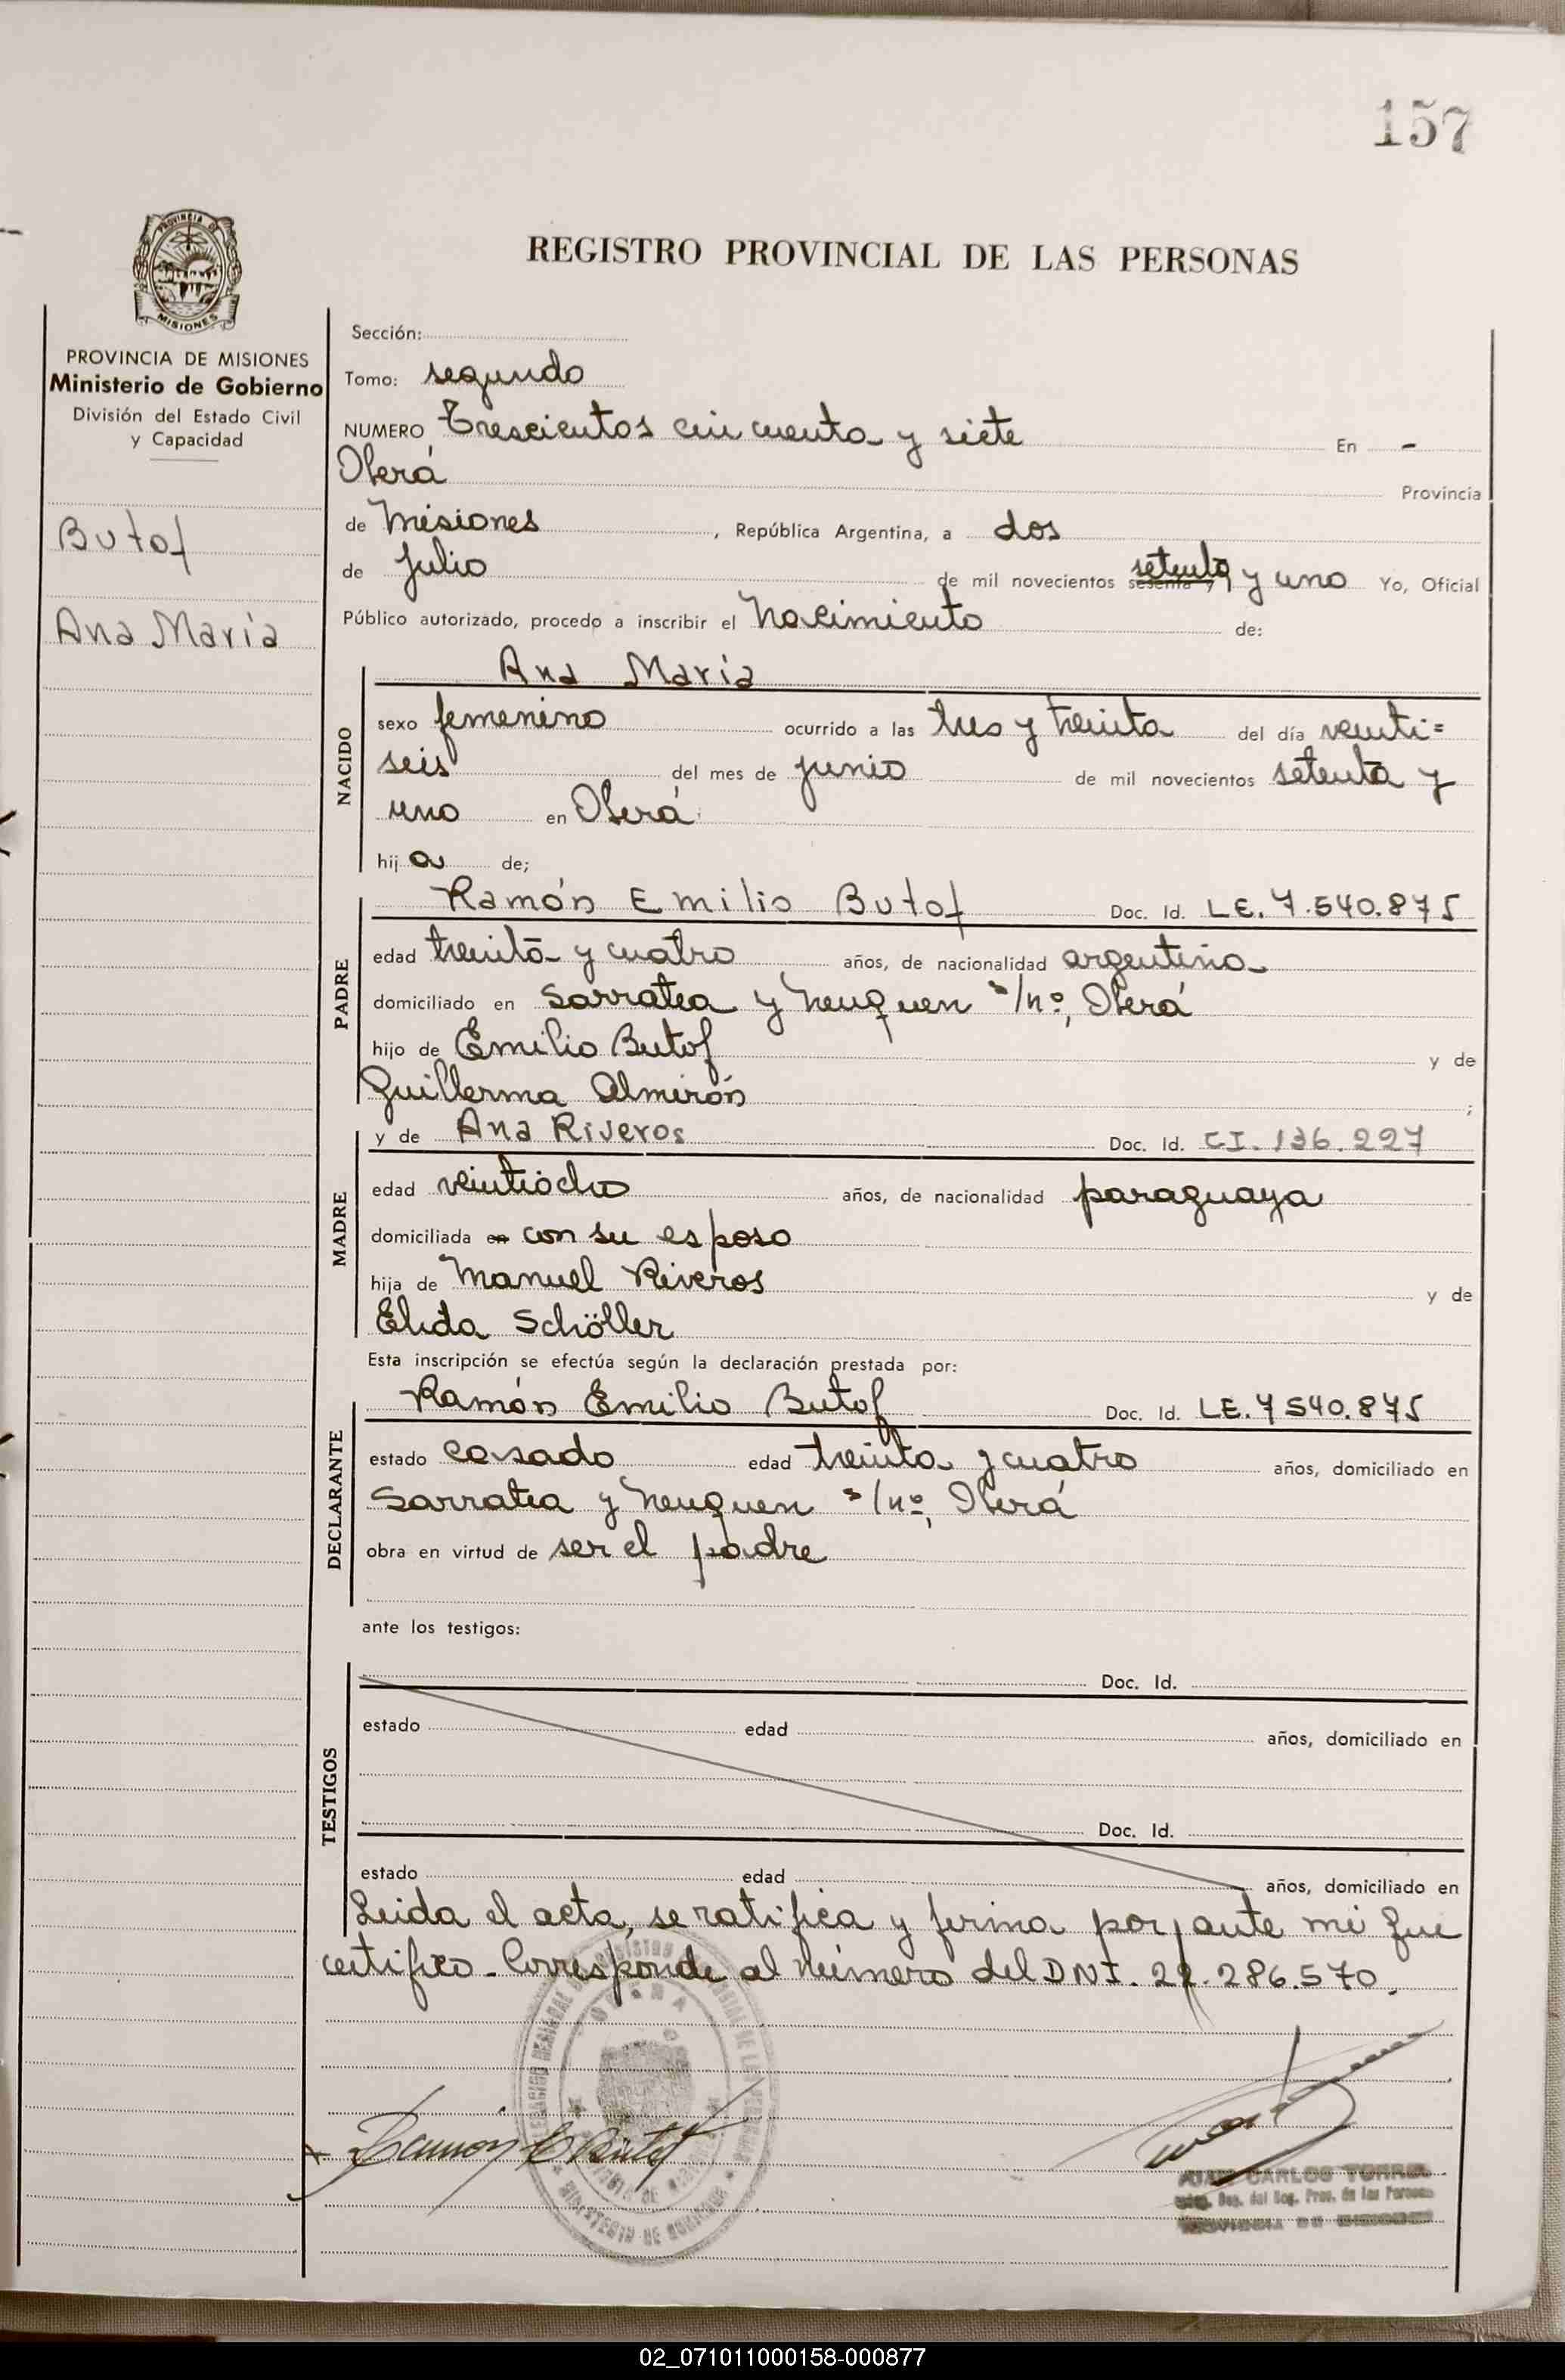 157
PROVINCIA DE
MISIONES
REGISTRO PROVINCIAL DE LAS PERSONAS
PROVINCIA DE MISIONES
Ministerio de Gobierno
División del Estado Civil
y Capacidad
Butof
Ana María
Sección:
Tomo: segundo
NUMERO Trescientos cincuenta y siete En -
Oberá Provincia
de Misiones, República Argentina, a dos
de Julio de mil novecientos sesenta y setenta y uno Yo, Oficial
Público autorizado, procedo a inscribir el Nacimiento de:
NACIDO
Ana María
sexo femenino ocurrido a las tres y treinta del día veinti=
seis del mes de junio de mil novecientos setenta y
uno en Oberá
hija de;
PADRE
Ramón Emilio Butof Doc. Id. LE. 7.540.875
edad treinta y cuatro años, de nacionalidad argentina
domiciliado en Sarratea y Neuquen s/nº, Oberá
hijo de Emilio Butof y de
Guillerma Almirón ;
MADRE
y de Ana Riveros Doc. Id. CI. 136.227
edad veintiocho años, de nacionalidad paraguaya
domiciliada en con su esposo
hija de Manuel Riveros y de
Elida Schöller
Esta inscripción se efectúa según la declaración prestada por:
DECLARANTE
Ramón Emilio Butof Doc. Id. LE. 7540.875
estado casado edad treinta y cuatro años, domiciliado en
Sarratea y Neuquen s/nº, Oberá
obra en virtud de ser el padre
ante los testigos:
TESTIGOS
Doc. Id.
estado edad años, domiciliado en
Doc. Id.
estado edad años, domiciliado en
Leida el acta, se ratifica y firma por ante mi que
certifico. Corresponde al número del DNI. 22.286.570.
Ramón E Butof
CARLOS TORRES
del Reg. Prov. de las Personas
PROVINCIA DE MISIONES
02_071011000158-000877